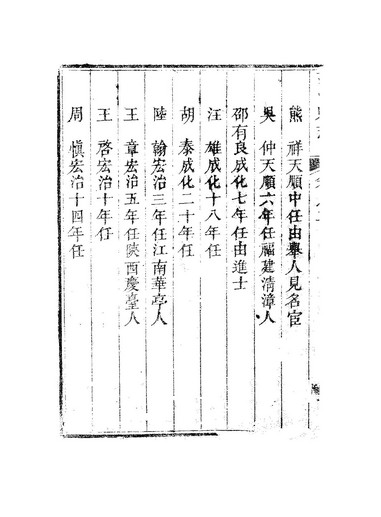 熊　祥天順中任由舉人見名宦
吳　仲天順六年任福建清漳人
邵有良成化七年任由進士
汪　雄成化十八年任
胡　泰成化二十年任
陸　翰宏治三年任江南華亭人
王　章宏治五年任陝西慶臺人
王　啓宏治十年任
周　愼宏治十四年任